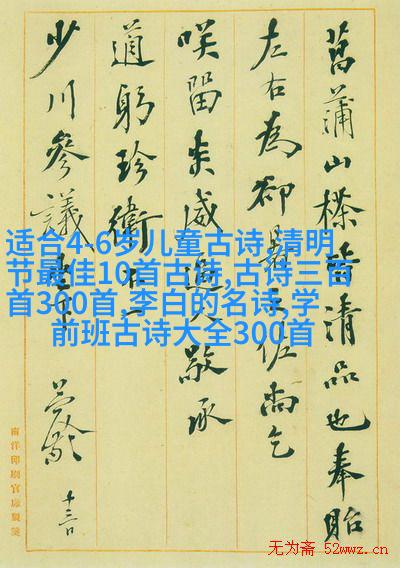 适合4-6岁儿童古诗,清明
节最佳10首古诗,古诗三百
首300首,李白的名诗,学
前班古诗大全300首
菖蒲山皆清品也奉貽
左右為卻暑之佐尚乞
咲留進敬承
適躬珍衛不一
少川參議
十三日
南洋印刷官廠製箋
无为斋 52wwz.cn